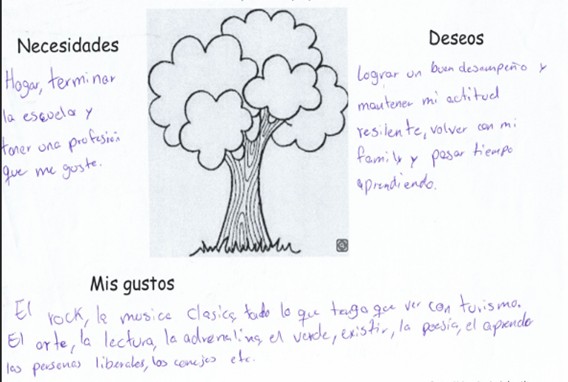 Necesidades
Hogar, terminar
la escuela y
tener una profesión
que me guste.
Deseos
Lograr un buen desempeño y
mantener mi actitud
resilente, volver con mi
family y pasar tiempo
aprendiendo.
Mis gustos
El rock, la musica clasica, todo lo que tenga que ver con turismo.
El arte, la lectura, la adrenalina, el verde, existir, la poesía, el aprender
las personas liberales, los conejos etc.